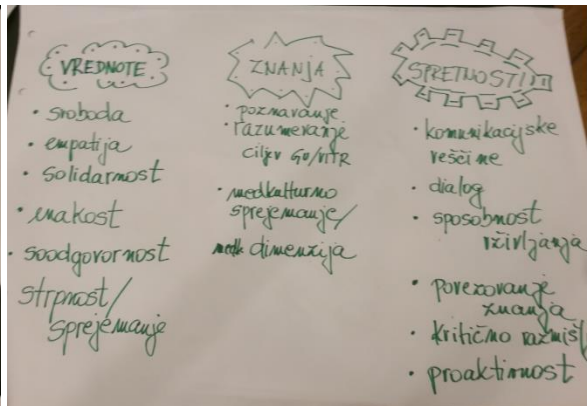 VREDNOTE
• svoboda
• empatija
• solidarnost
• enakost
• soodgovornost
strpnost/
sprejemanje
ZNANJA
• poznavanje
• razumevanje
ciljev GU/VITR
• medkulturno
sprejemanje/
dimenzija
SPRETNOSTI
• komunikacijske
veščine
• dialog
• sposobnost
vživljanja
• povezovanje
znanja
• kritično razmišlj
• proaktivnost